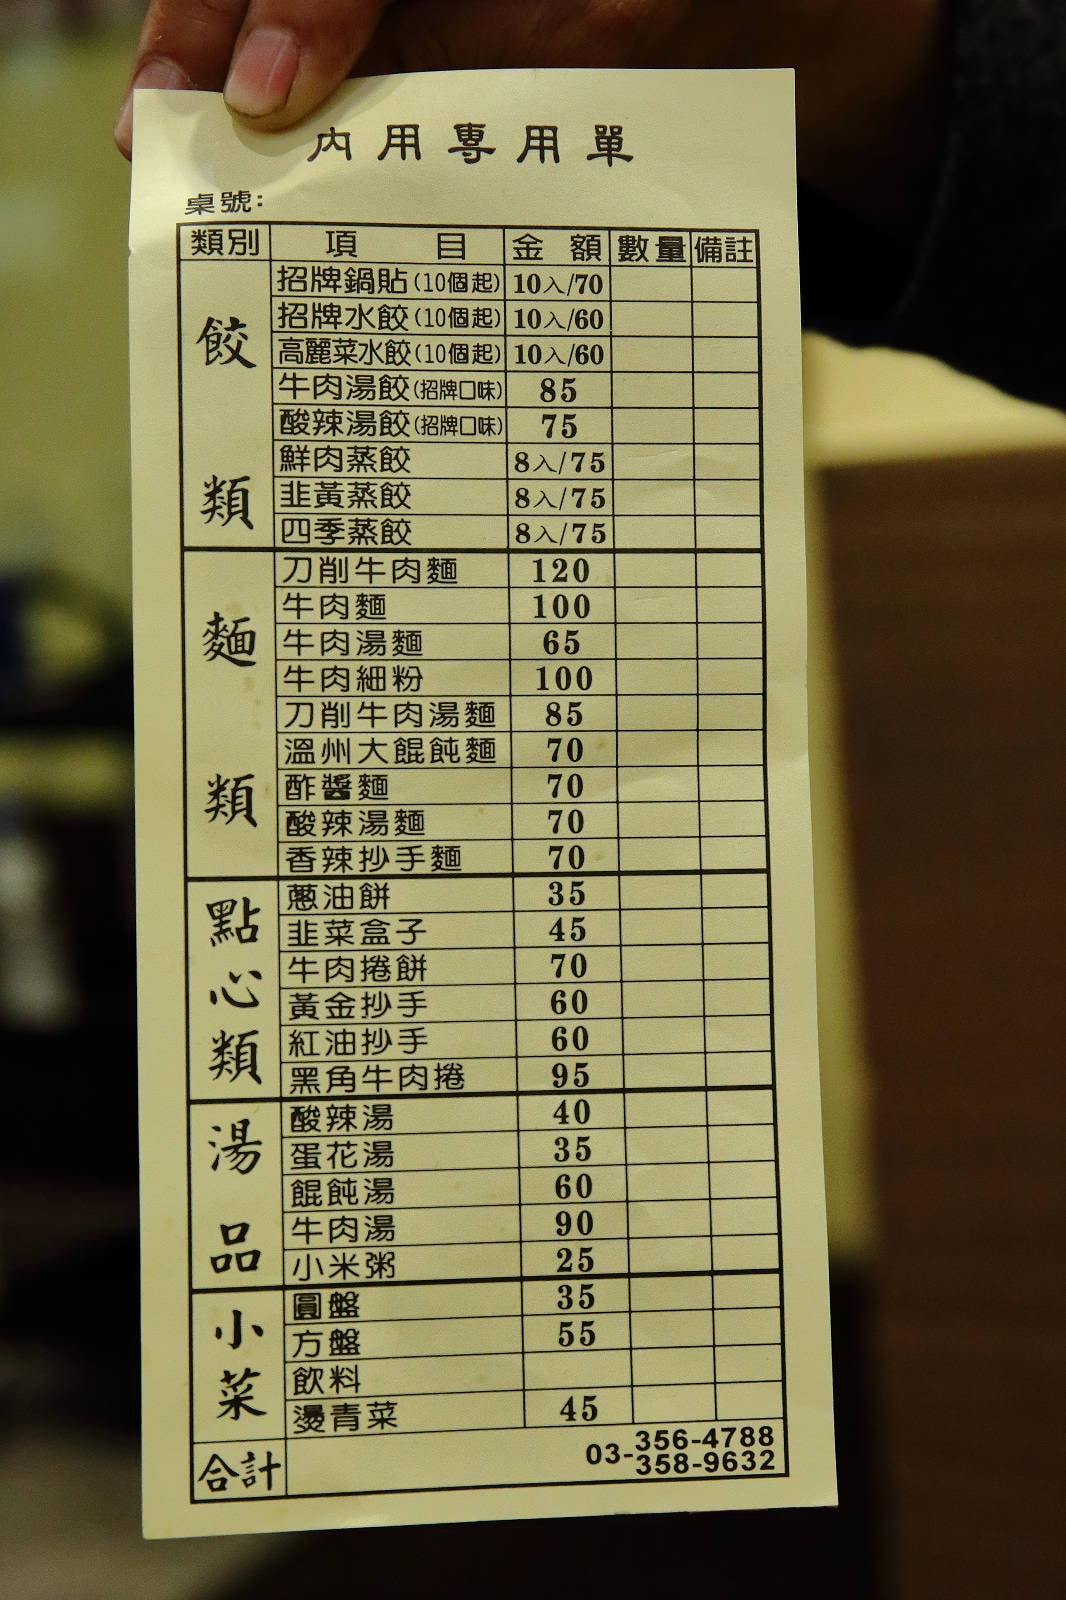 內用專用單
桌號:
類別 項目 金額 數量 備註
餃類
招牌鍋貼(10個起) 10入/70
招牌水餃(10個起) 10入/60
高麗菜水餃(10個起) 10入/60
牛肉湯餃(招牌口味) 85
酸辣湯餃(招牌口味) 75
鮮肉蒸餃 8入/75
韭黃蒸餃 8入/75
四季蒸餃 8入/75
麵類
刀削牛肉麵 120
牛肉麵 100
牛肉湯麵 65
牛肉細粉 100
刀削牛肉湯麵 85
溫州大餛飩麵 70
酢醬麵 70
酸辣湯麵 70
香辣抄手麵 70
點心類
蔥油餅 35
韭菜盒子 45
牛肉捲餅 70
黃金抄手 60
紅油抄手 60
黑角牛肉捲 95
湯品
酸辣湯 40
蛋花湯 35
餛飩湯 60
牛肉湯 90
小米粥 25
小菜
圓盤 35
方盤 55
飲料
燙青菜 45
合計
03-356-4788
358-9632